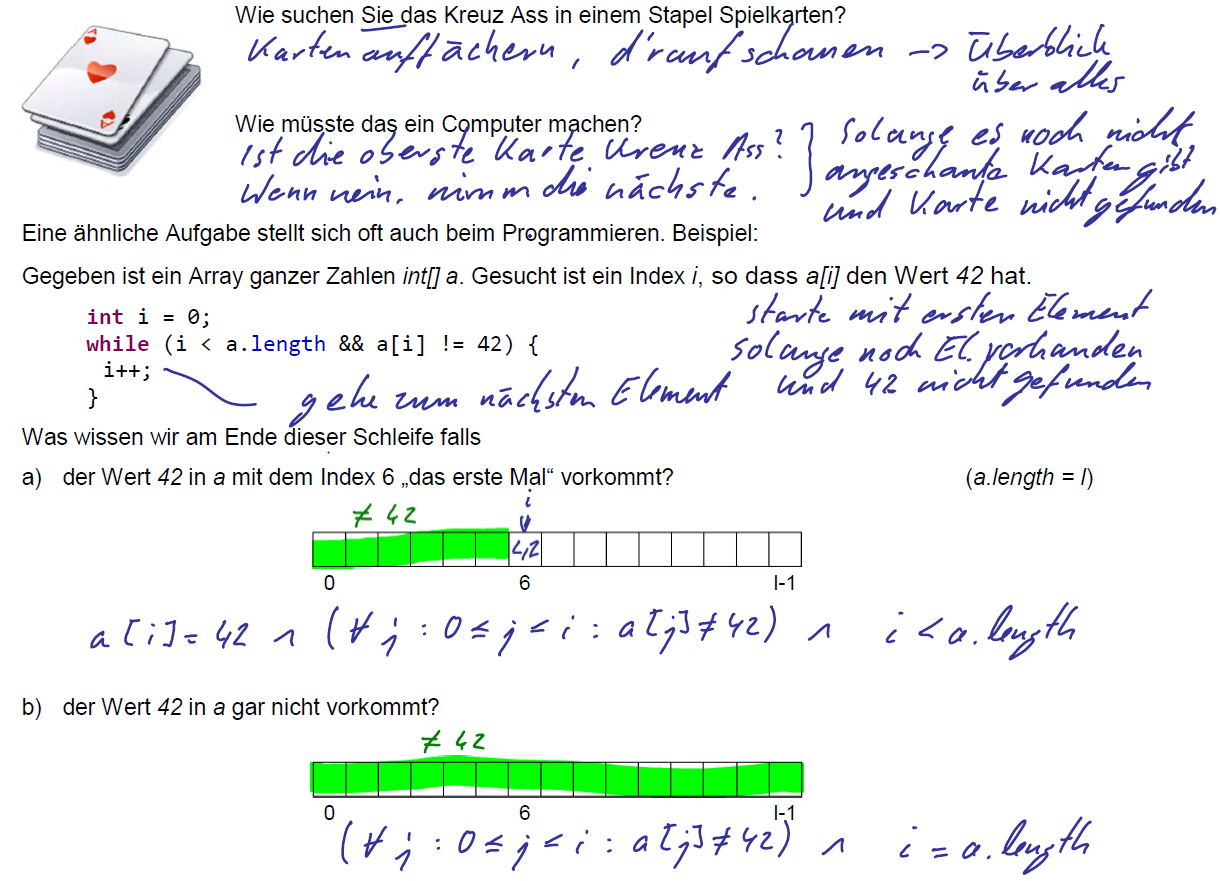 Wie suchen Sie das Kreuz Ass in einem Stapel Spielkarten?
Karten auffächern, d'rauf schauen -> Überblick
über alles
Wie müsste das ein Computer machen?
Ist die oberste Karte Kreuz Ass? } Solange es noch nicht
Wenn nein, nimm die nächste. angeschaute Karten gibt
und Karte nicht gefunden
Eine ähnliche Aufgabe stellt sich oft auch beim Programmieren. Beispiel:
Gegeben ist ein Array ganzer Zahlen int[] a. Gesucht ist ein Index i, so dass a[i] den Wert 42 hat.
int i = 0; starte mit ersten Element
while (i < a.length && a[i] != 42) { solange noch El. vorhanden
i++; gehe zum nächsten Element und 42 nicht gefunden
}
Was wissen wir am Ende dieser Schleife falls
a) der Wert 42 in a mit dem Index 6 „das erste Mal“ vorkommt? (a.length = l)
≠ 42 i
42
0 6 l-1
a[i] = 42 ∧ (∀ j : 0 ≤ j < i : a[j] ≠ 42) ∧ i < a.length
b) der Wert 42 in a gar nicht vorkommt?
≠ 42
0 6 l-1
(∀ j : 0 ≤ j < i : a[j] ≠ 42) ∧ i = a.length
A
A